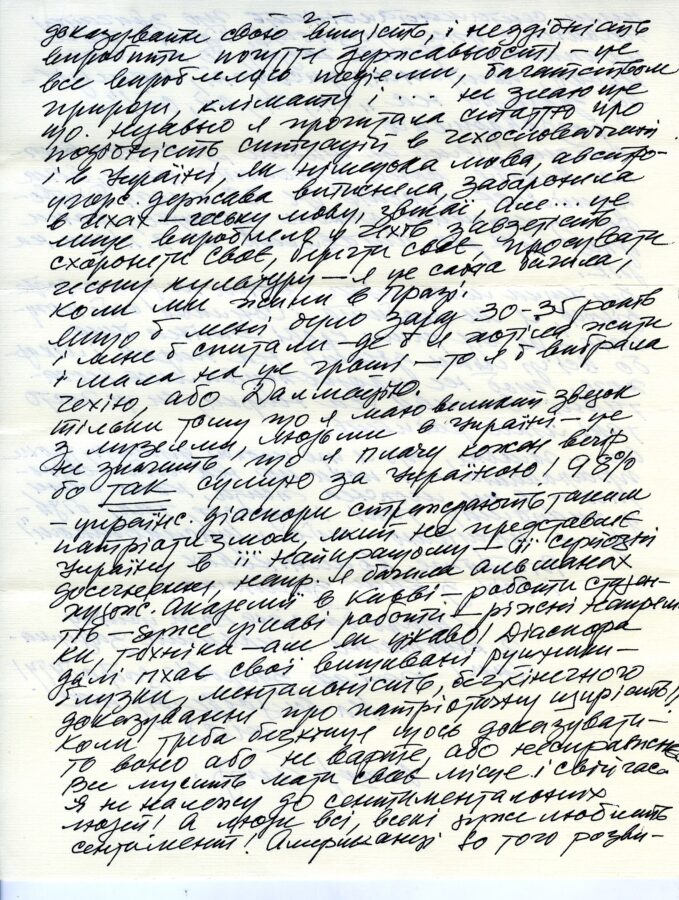 доказувати свою вищість, і нездібність
виробити почуття державності – це
все вироблялось подіями, багатством
природи, клімату і ... не знаю ще
що. Недавно я прочитала статтю про
подібність ситуацій в Чехословаччині
і в Україні, як німецька мова, австро-
угорс. держава витиснела, забаронила
в Чехах – чеську мову, звичаї, але... це
лише виробило у чехів завзятість
схоронети своє, берегти своє, просувати
чеську культуру – я це сама бачила,
коли ми жили в Празі.
Якщо б мені було зараз 30-35 років
і мене б спитали – де б я хотіла жити
і мала на це гроші – то я б вибрала
Чехію, або Далмацію.
Тільки тому що я маю великий звязок
з музеями, людьми в Україні – це
не значить що я плачу кожен вечір
бо так сумую за Україною! 98%
– українс. діаспори страждають таким
патріотизмом, який не представляє
Україну в її найкращому – її серйозні
досягнення, напр. я бачила альманах
худож. Академії в Києві – роботи студен-
тів – дуже цікаві роботи – ріжні напрям-
ки, техніка – але як цікаво! Діаспора
далі пхає свої вишивані рушники –
блузки, ментальність безкінечного
доказування про патріотичну щирість!
Коли треба безкінця щось доказувати –
то воно або не варте, або несправжнє
Все мусить мати своє місце і свій час.
Я не належу до сентиментальних
людей! А люди всі, всені дуже люблять
сентимент! Американці до того розви-